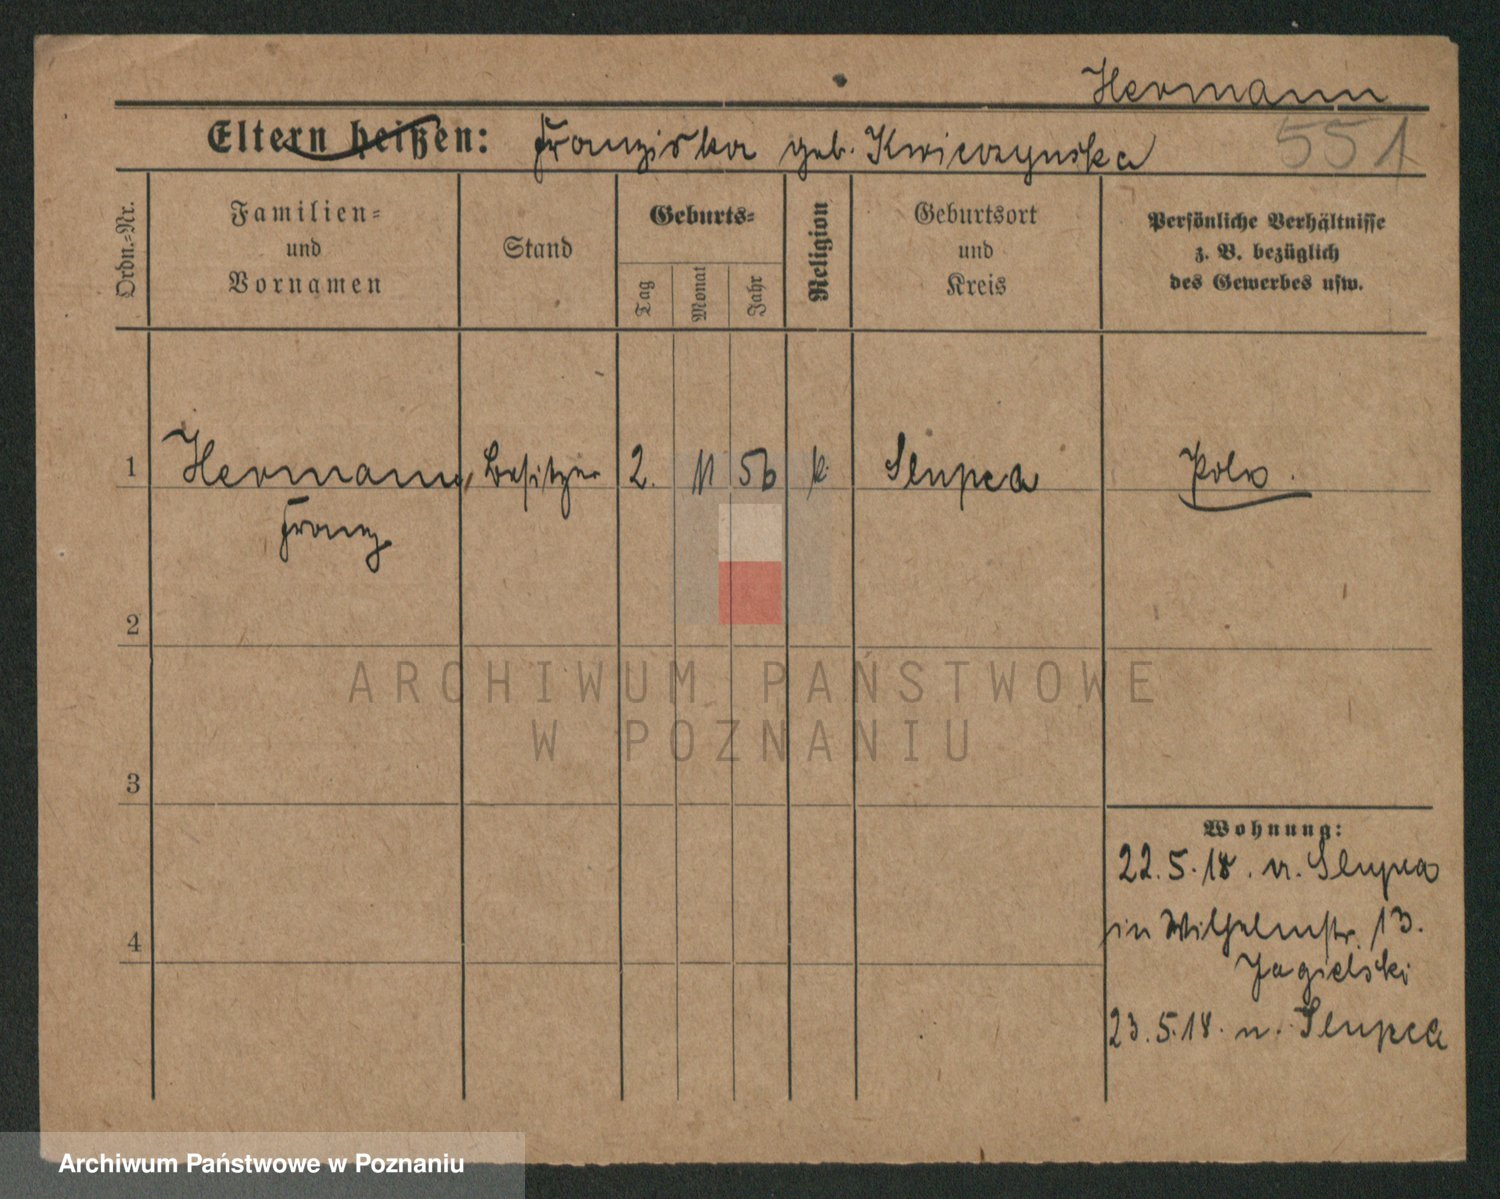 Hermann
Eltern heißen: Franziska geb. Kwiczynska
551
Ordn.-Nr.
Familien-
und
Vornamen
Stand
Geburts-
Tag
Monat
Jahr
Religion
Geburtsort
und
Kreis
Persönliche Verhältnisse
z. B. bezüglich
des Gewerbes usw.
1 Hermann, Besitzer 2. 11 56 k. Slupca Pole.
Franz
2
ARCHIWUM PAŃSTWOWE
W POZNANIU
3
Wohnung:
22.5.18. v. Slupca
4
in Wilhelmstr. 13.
Jagielski
23.5.18. n. Slupca
Archiwum Państwowe w Poznaniu